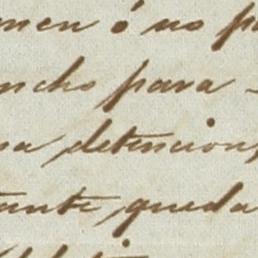 men ó no p
ncho para
na detencion,
tante queda